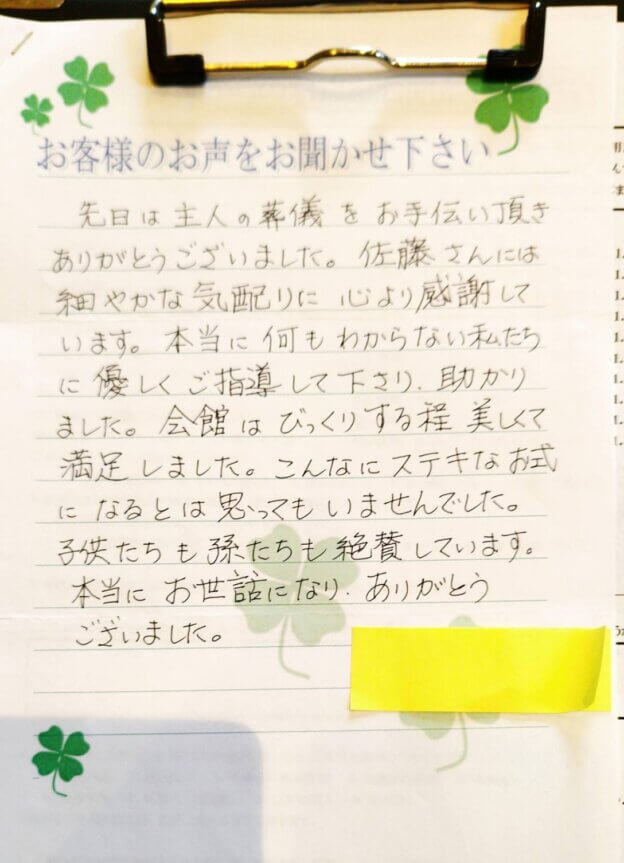 お客様のお声をお聞かせ下さい
先日は主人の葬儀をお手伝い頂き
ありがとうございました。佐藤さんには
細やかな気配りに心より感謝して
います。本当に何もわからない私たち
に優しくご指導して下さり、助かり
ました。会館はびっくりする程美しくて
満足しました。こんなにステキなお式
になるとは思ってもいませんでした。
子供たちも孫たちも絶賛しています。
本当にお世話になり、ありがとう
ございました。